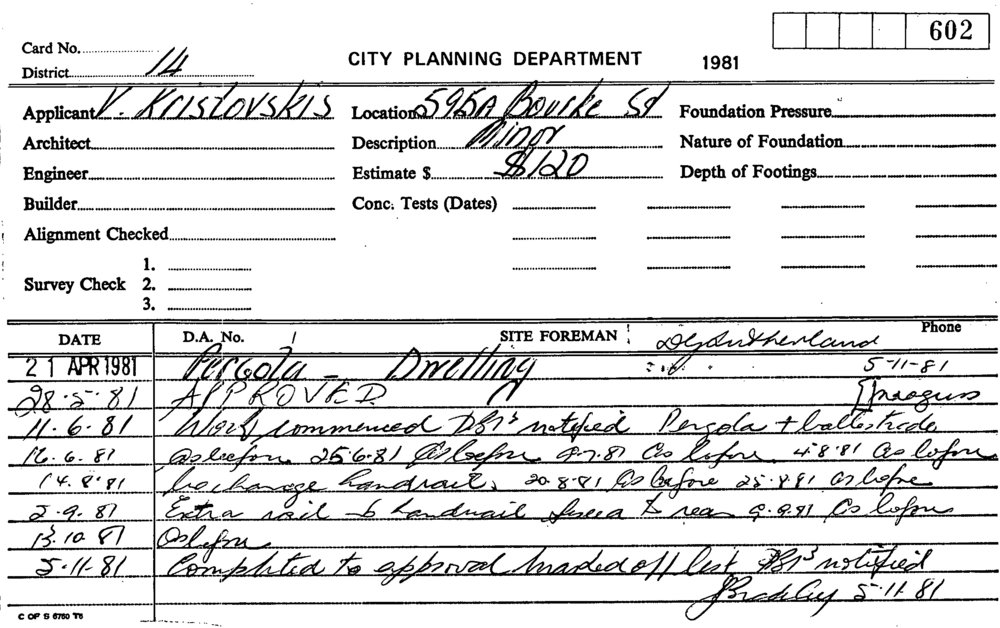 602
Card No.
District 14
CITY PLANNING DEPARTMENT 1981
Applicant V. Kristovskis Location 595A Bourke St Foundation Pressure
Architect Description Minor Nature of Foundation
Engineer Estimate $ $120 Depth of Footings
Builder Conc. Tests (Dates)
Alignment Checked
1.
Survey Check 2.
3.
DATE D.A. No. SITE FOREMAN Phone
21 APR 1981 Pergola - Dwelling 5-11-81
28.5.81 APPROVED
11.6.81 Work commenced notified Pergola + ballestrade
16.6.81 as before 25.6.81 As before 9.7.81 As before 4.8.81 As before
14.8.81 handrail. 20.8.81 As before 25.8.81 as before
2.9.81 Extra rail to handrail rear 9.9.81 As before
13.10.81 As before
5.11.81 Completed to approval marked off list notified
5.11.81
C OF S 6760 T6